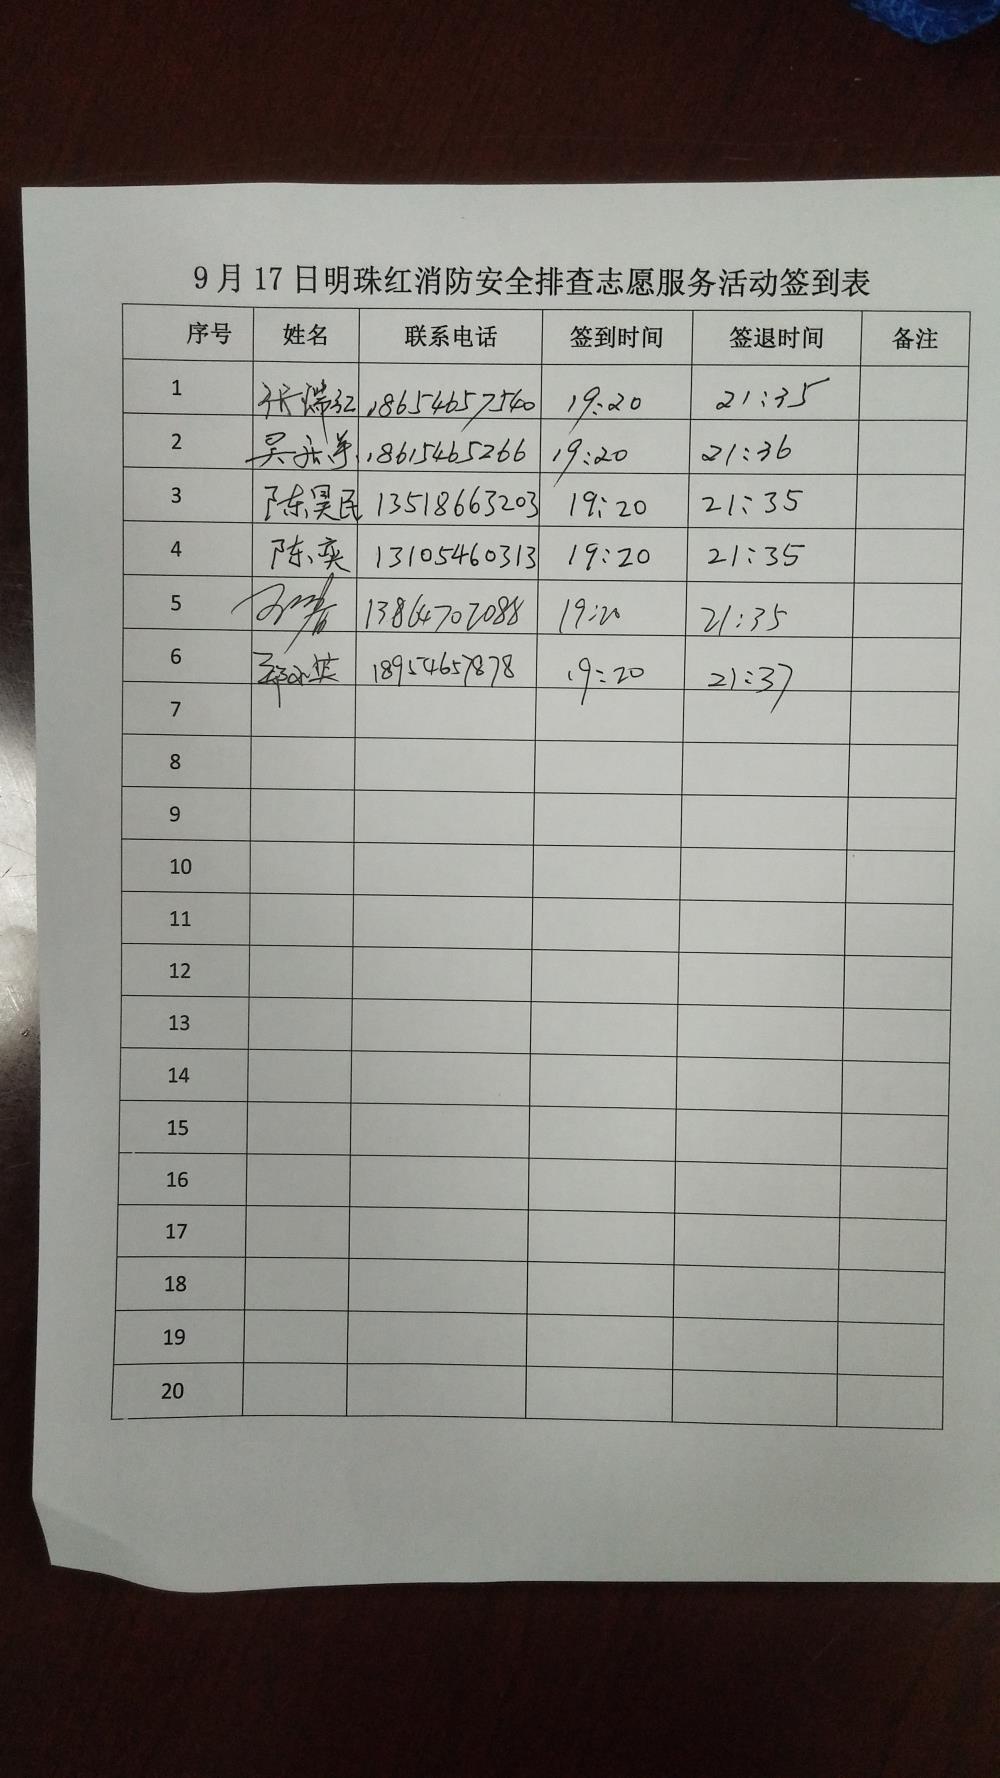 9月17日明珠红消防安全排查志愿服务活动签到表
序号 姓名 联系电话 签到时间 签退时间 备注
1 张瑞红 18654657540 19:20 21:35
2 吴 18615465266 19:20 21:36
3 陈昊民 13518663203 19:20 21:35
4 陈奕 13105460313 19:20 21:35
5 13864702088 19:20 21:35
6 18954657878 19:20 21:37
7
8
9
10
11
12
13
14
15
16
17
18
19
20